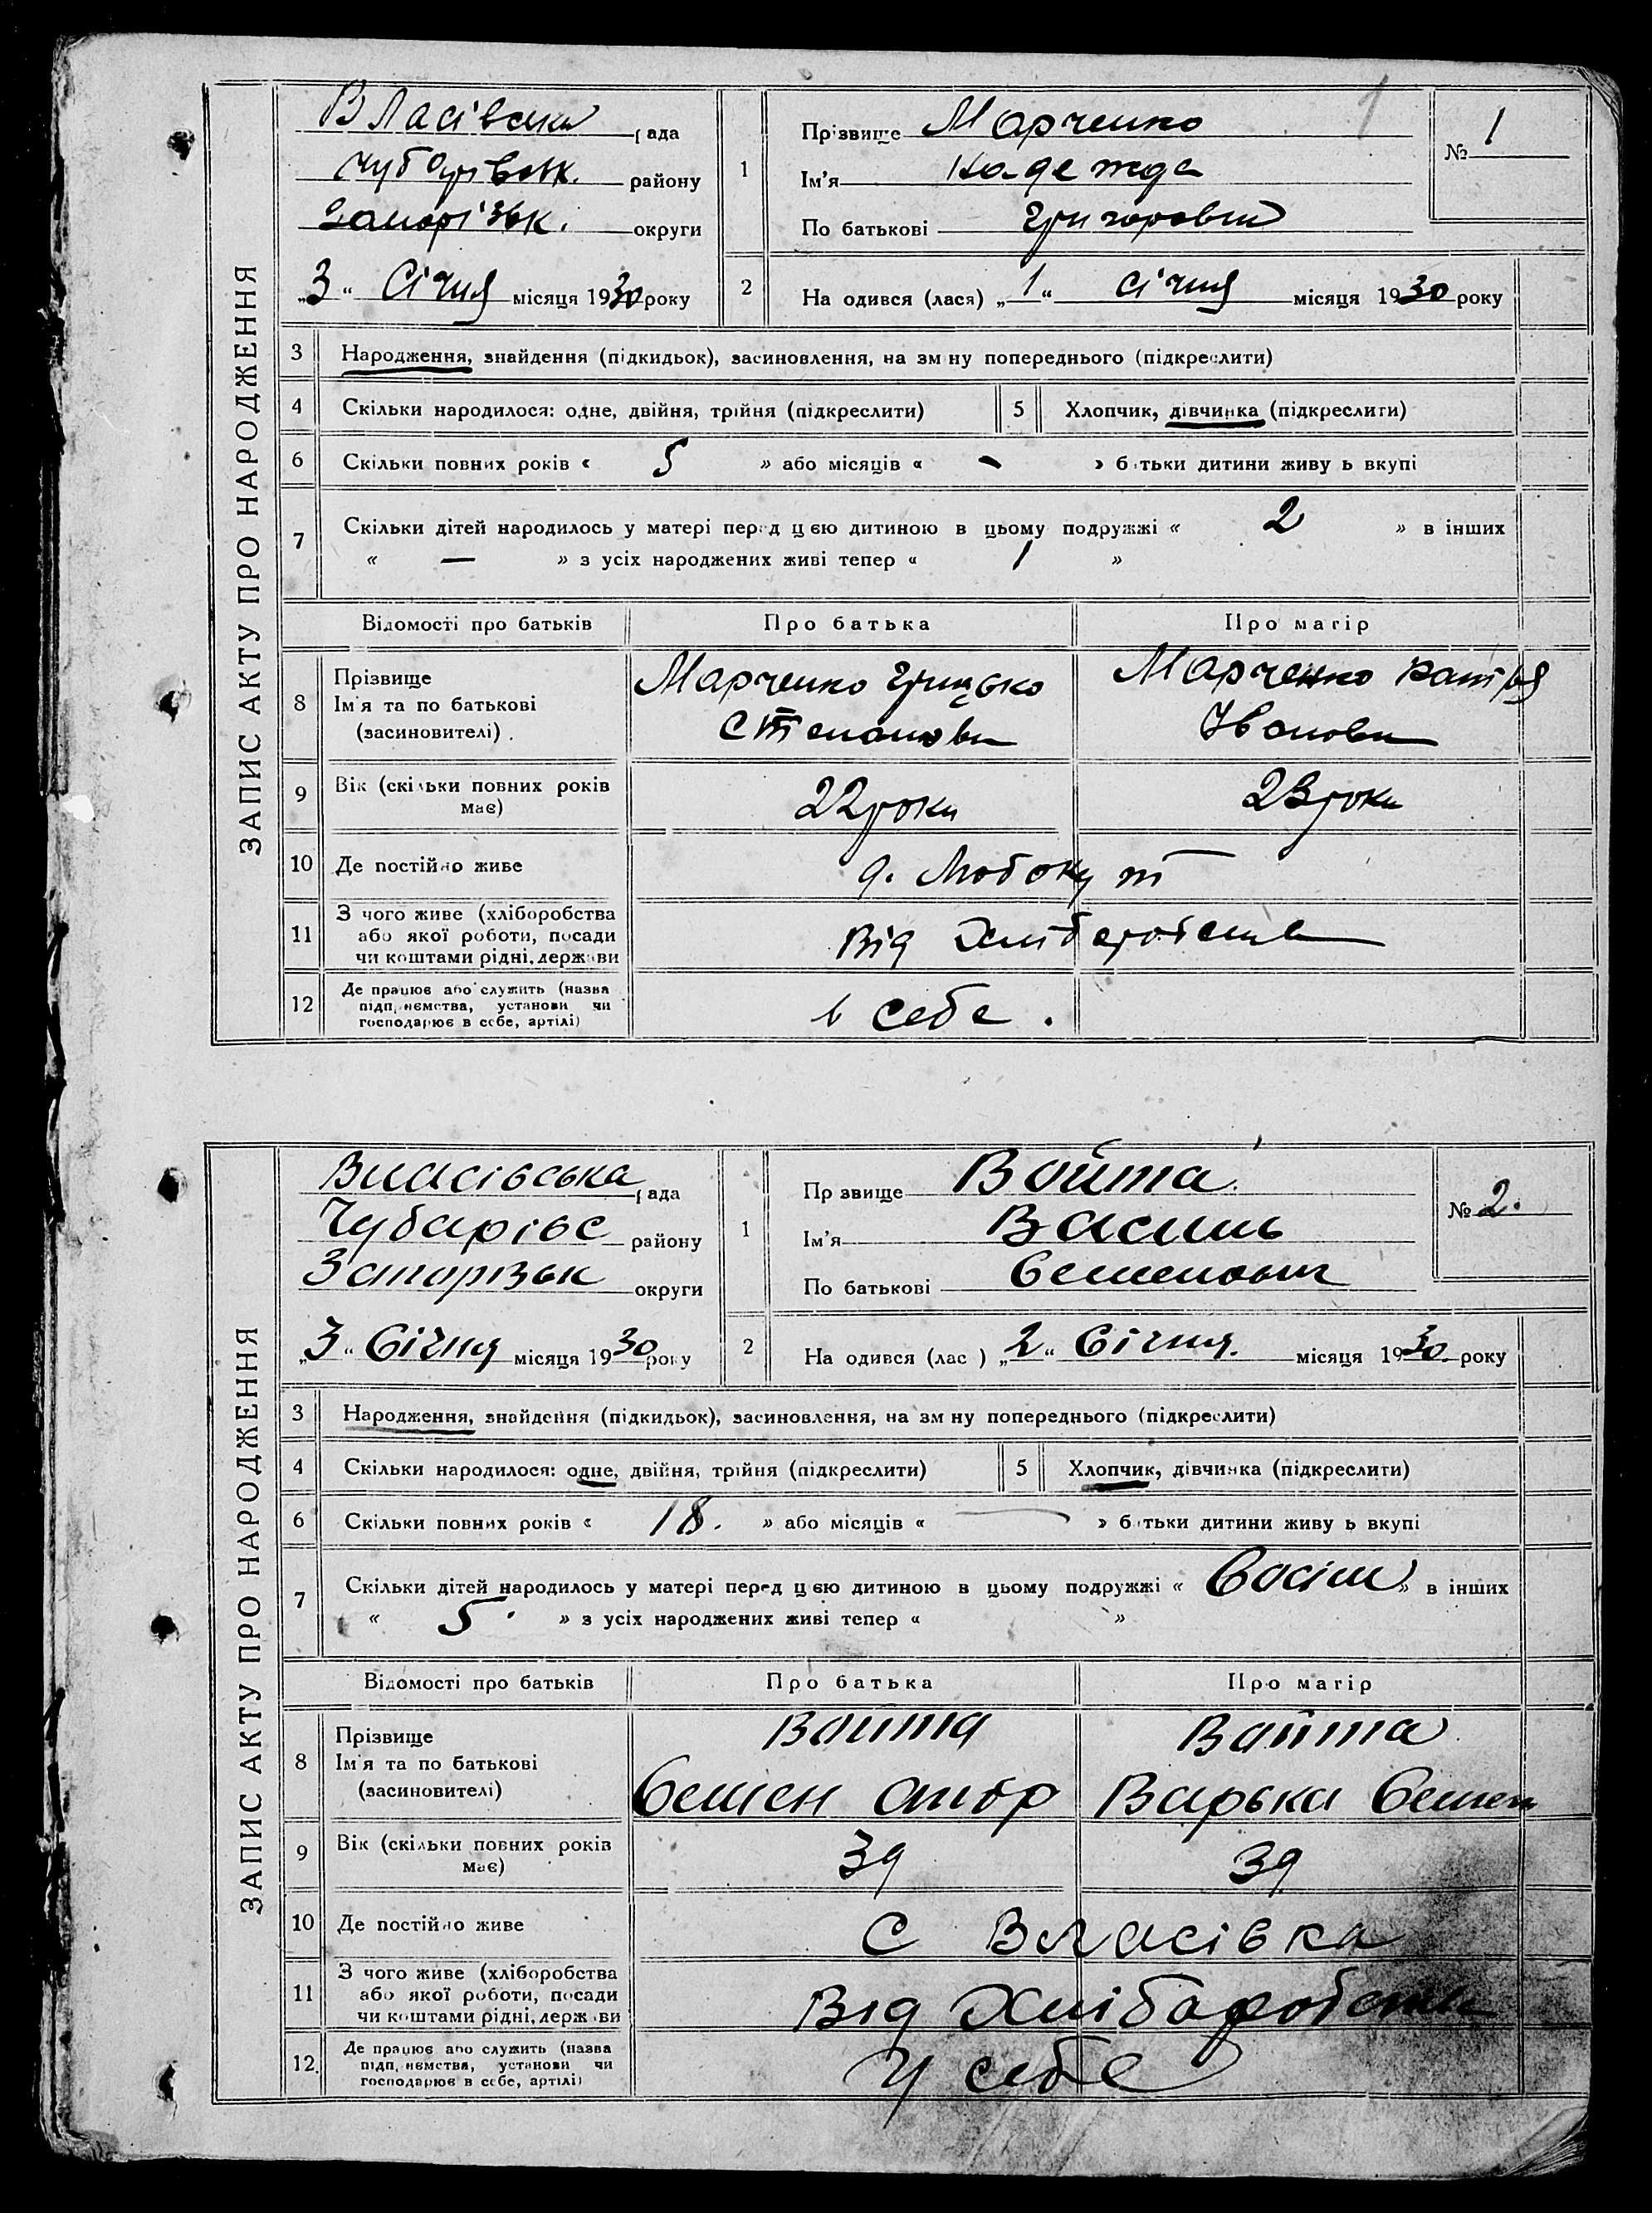 ЗАПИС АКТУ ПРО НАРОДЖЕННЯ
1
Власівська рада
Чубарівськ. району
Запорізьк. округи
„3“ Січня місяця 1930 року
1 Прізвище Марченко
Ім'я Надежда
По батькові Григоровна
№ 1
2 На одився (лася) „1“ січня місяця 1930 року
3 Народження, знайдення (підкидьок), засиновлення, на зм ну попереднього (підкреслити)
4 Скільки народилося: одне, двійня, трійня (підкреслити) 5 Хлопчик, дівчинка (підкреслити)
6 Скільки повних років « 5 » або місяців « - » б тьки дитини живу ь вкупі
7 Скільки дітей народилось у матері перед цією дитиною в цьому подружжі « 2 » в інших
« — » з усіх народжених живі тепер « 1 »
Відомості про батьків Про батька Про матір
8 Прізвище
Ім'я та по батькові
(засиновителі).
Марченко Грицько
Степанови
Марченко Катря
Иванови
9 Вік (скільки повних років
має)
22 роки 23 роки
10 Де постійно живе
11 З чого живе (хліборобства
або якої роботи, посади
чи коштами рідні, держави
Від Хліборобства
12 Де працює або служить (назва
підп, иємства, установи чи
господарює в себе, артілі)
в себе.
ЗАПИС АКТУ ПРО НАРОДЖЕННЯ
Власівська рада
Чубарівс району
Запорізьк округи
„3“ Січня місяця 1930 року
1 Пр звище Войта
Ім'я Василь
По батькові Семенович
№ 2.
2 На одився (лас ) „2“ Січня. місяця 1930. року
3 Народження, знайдення (підкидьок), засиновлення, на зм ну попереднього (підкреслити)
4 Скільки народилося: одне, двійня, трійня (підкреслити) 5 Хлопчик, дівчинка (підкреслити)
6 Скільки повних років « 18. » або місяців « — » б тьки дитини живу ь вкупі
7 Скільки дітей народилось у матері перед цією дитиною в цьому подружжі « Восім » в інших
« 5. » з усіх народжених живі тепер « »
Відомості про батьків Про батька Про матір
8 Прізвище
Ім'я та по батькові
(засиновителі)
Войта
Семен
Войта
Варька Семен
9 Вік (скільки повних років
має)
39 39
10 Де постійно живе
С Власівка
11 З чого живе (хліборобства
або якої роботи, посади
чи коштами рідні, держ ви
Від Хліборобства
12. Де працює або служить (назва
підп, иємства, установи чи
господарює в себе, артілі)
У себе